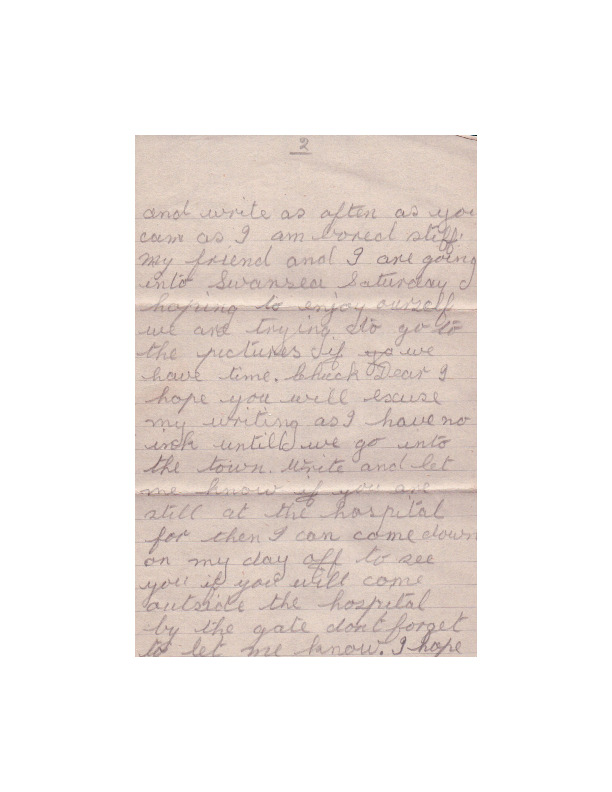 2
and write as often as you
can as I am bored stiff.
My friend and I are going
into Swansea Saturday
hoping to enjoy ourself
we are trying to go to
the pictures if yo we
have time. Chuck Dear I
hope you will excuse
my writing as I have no
ink untill we go into
the town. Write and let
me know if you are
still at the hospital
for then I can come down
on my day off to see
you if you will come
outside the hospital
by the gate dont forget
to let me know. I hope